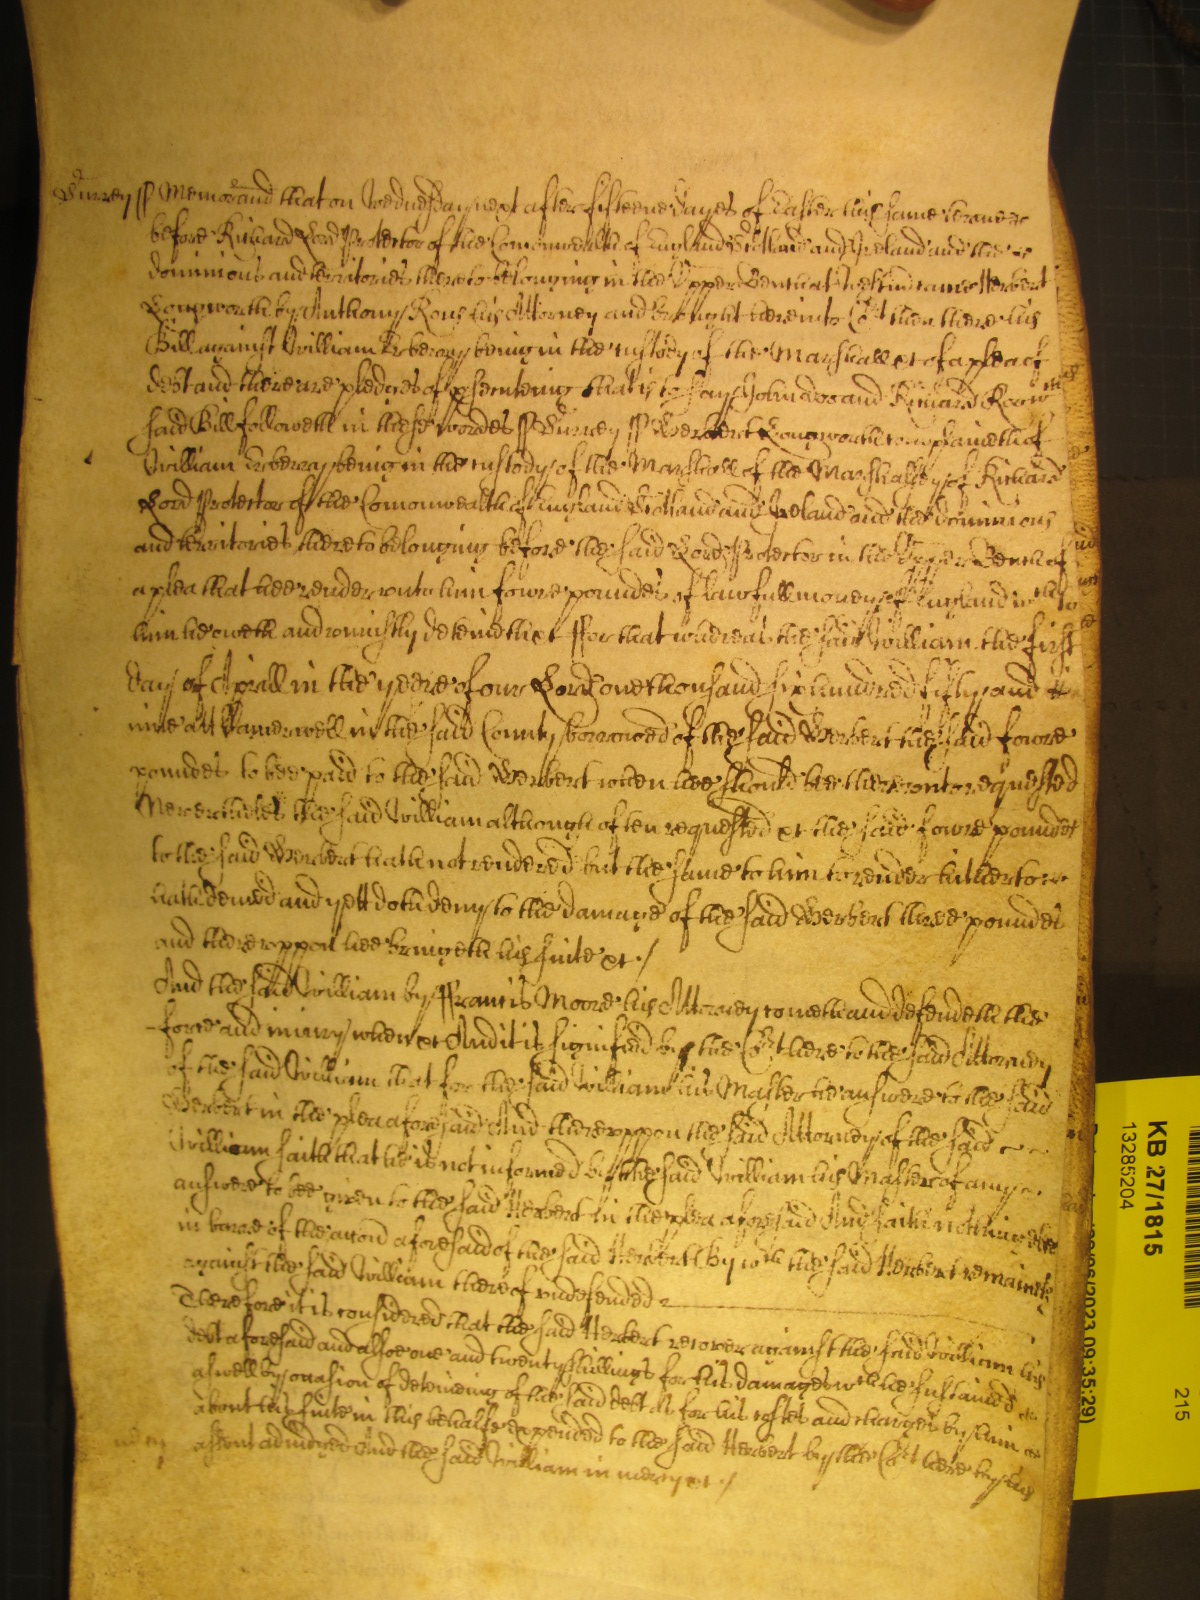 Surrey ss Memorand that on Wednesday next after fifteene dayes of Easter this same terme
before Richard Lord Protector of the Comonwealth of England Scotland and Ireland and the
dominions and territories thereto belonging in the Upper Bench at Westm came Herbert
Longworth by Anthony Rous his Attorney and brought here into Cort then there his
Bill against William being in the custody of the Marshall &c of a plea of
debt and there are pledges of prsecuteing that is to say John Doe and Richard Roe wch
said Bill followeth in these wordes ss Surrey ss Herbert Longworth complaineth of
William being in the custody of the Marshall of the Marshallsey of Richard
Lord Protector of the Comonwealth of England Scotland and Ireland and the dominions
and territories thereto belonging before the said Lord Protector in the Upper Bench of
a plea that hee render unto him fowre poundes of lawfull money of England wch to
him he oweth and uniustly deteineth &c ffor that whereas the said William the first
day of Aprill in the yeere of our Lord one thousand six hundred fifty and
nine att Camerwell in the said County borrowed of the said Herbert the said fowre
poundes to bee paid to the said Herbert when hee should bee thereunto requested
Neverthelės the said William although often requested &c the said fowre poundes
to the said Herbert hath not rendered but the same to him to render hitherto
hath denied and yett doth deny to the damage of the said Herbert three poundes
and thereuppon hee bringeth his suite &c ./
And the said William by ffrancis Moore his Attorney cometh and defendeth the
force and iniury when &c And it is signified by the Cort here to the said Attorney
of the said William that for the said William his Master he answere to the said
Herbert in the plea aforesaid And thereuppon the said Attorney of the said
William saith that he is not informed by the said William his Master of any
answere to bee given to the said Herbert in the plea aforesaid And saith nothing else
in barre of the accon aforesaid of the said Herbert By wch the said Herbert remaineth
against the said William thereof undefended
Therefore it is considered that the said Herbert recover against the said William his
debt aforesaid and alsoe one and twenty shillings for his damages wch he sustained
aswell by occasion of deteineing of the said debt as for his costes and charges by him
about his suite in this behalfe expended to the said Herbert by the Cort here by his
assent adiudged And the said William in mercy &c ./
mercy
KB 27/1815
13285204
215
2023 09:35:29)